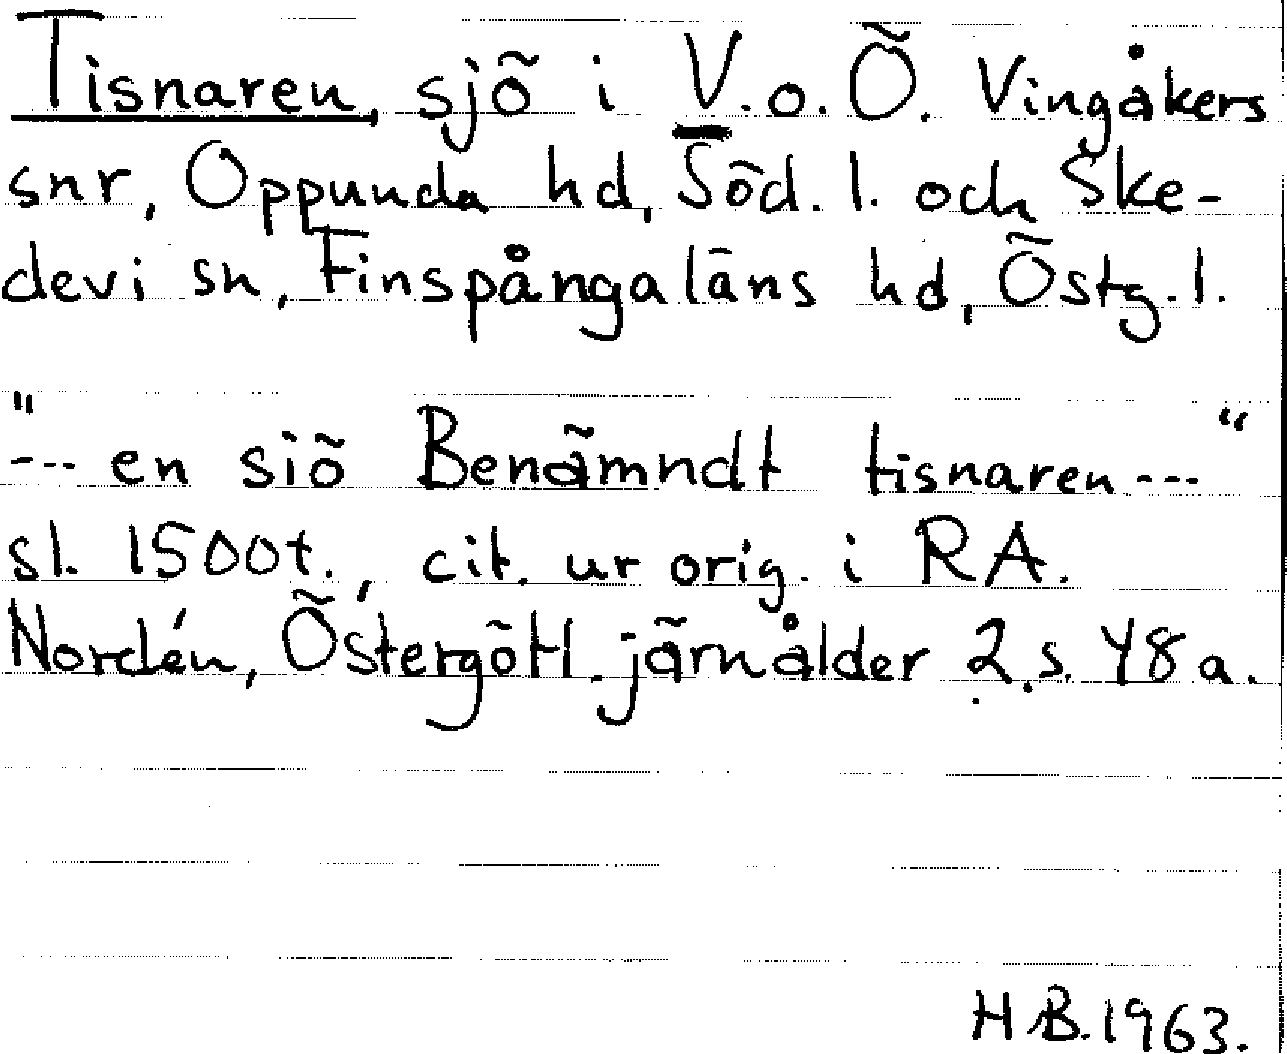 Tisnaren, sjö i V. o. Ö. Vingåkers
snr, Oppunda hd, Söd. l. och Ske-
devi sn, Finspångaläns hd, Östg. l.
"--- en siö Benämndt tisnaren ---"
sl. 1500t., cit. ur orig. i RA.
Nordén, Östergötl. järnålder 2 s. 48 a.
H.B. 1963.